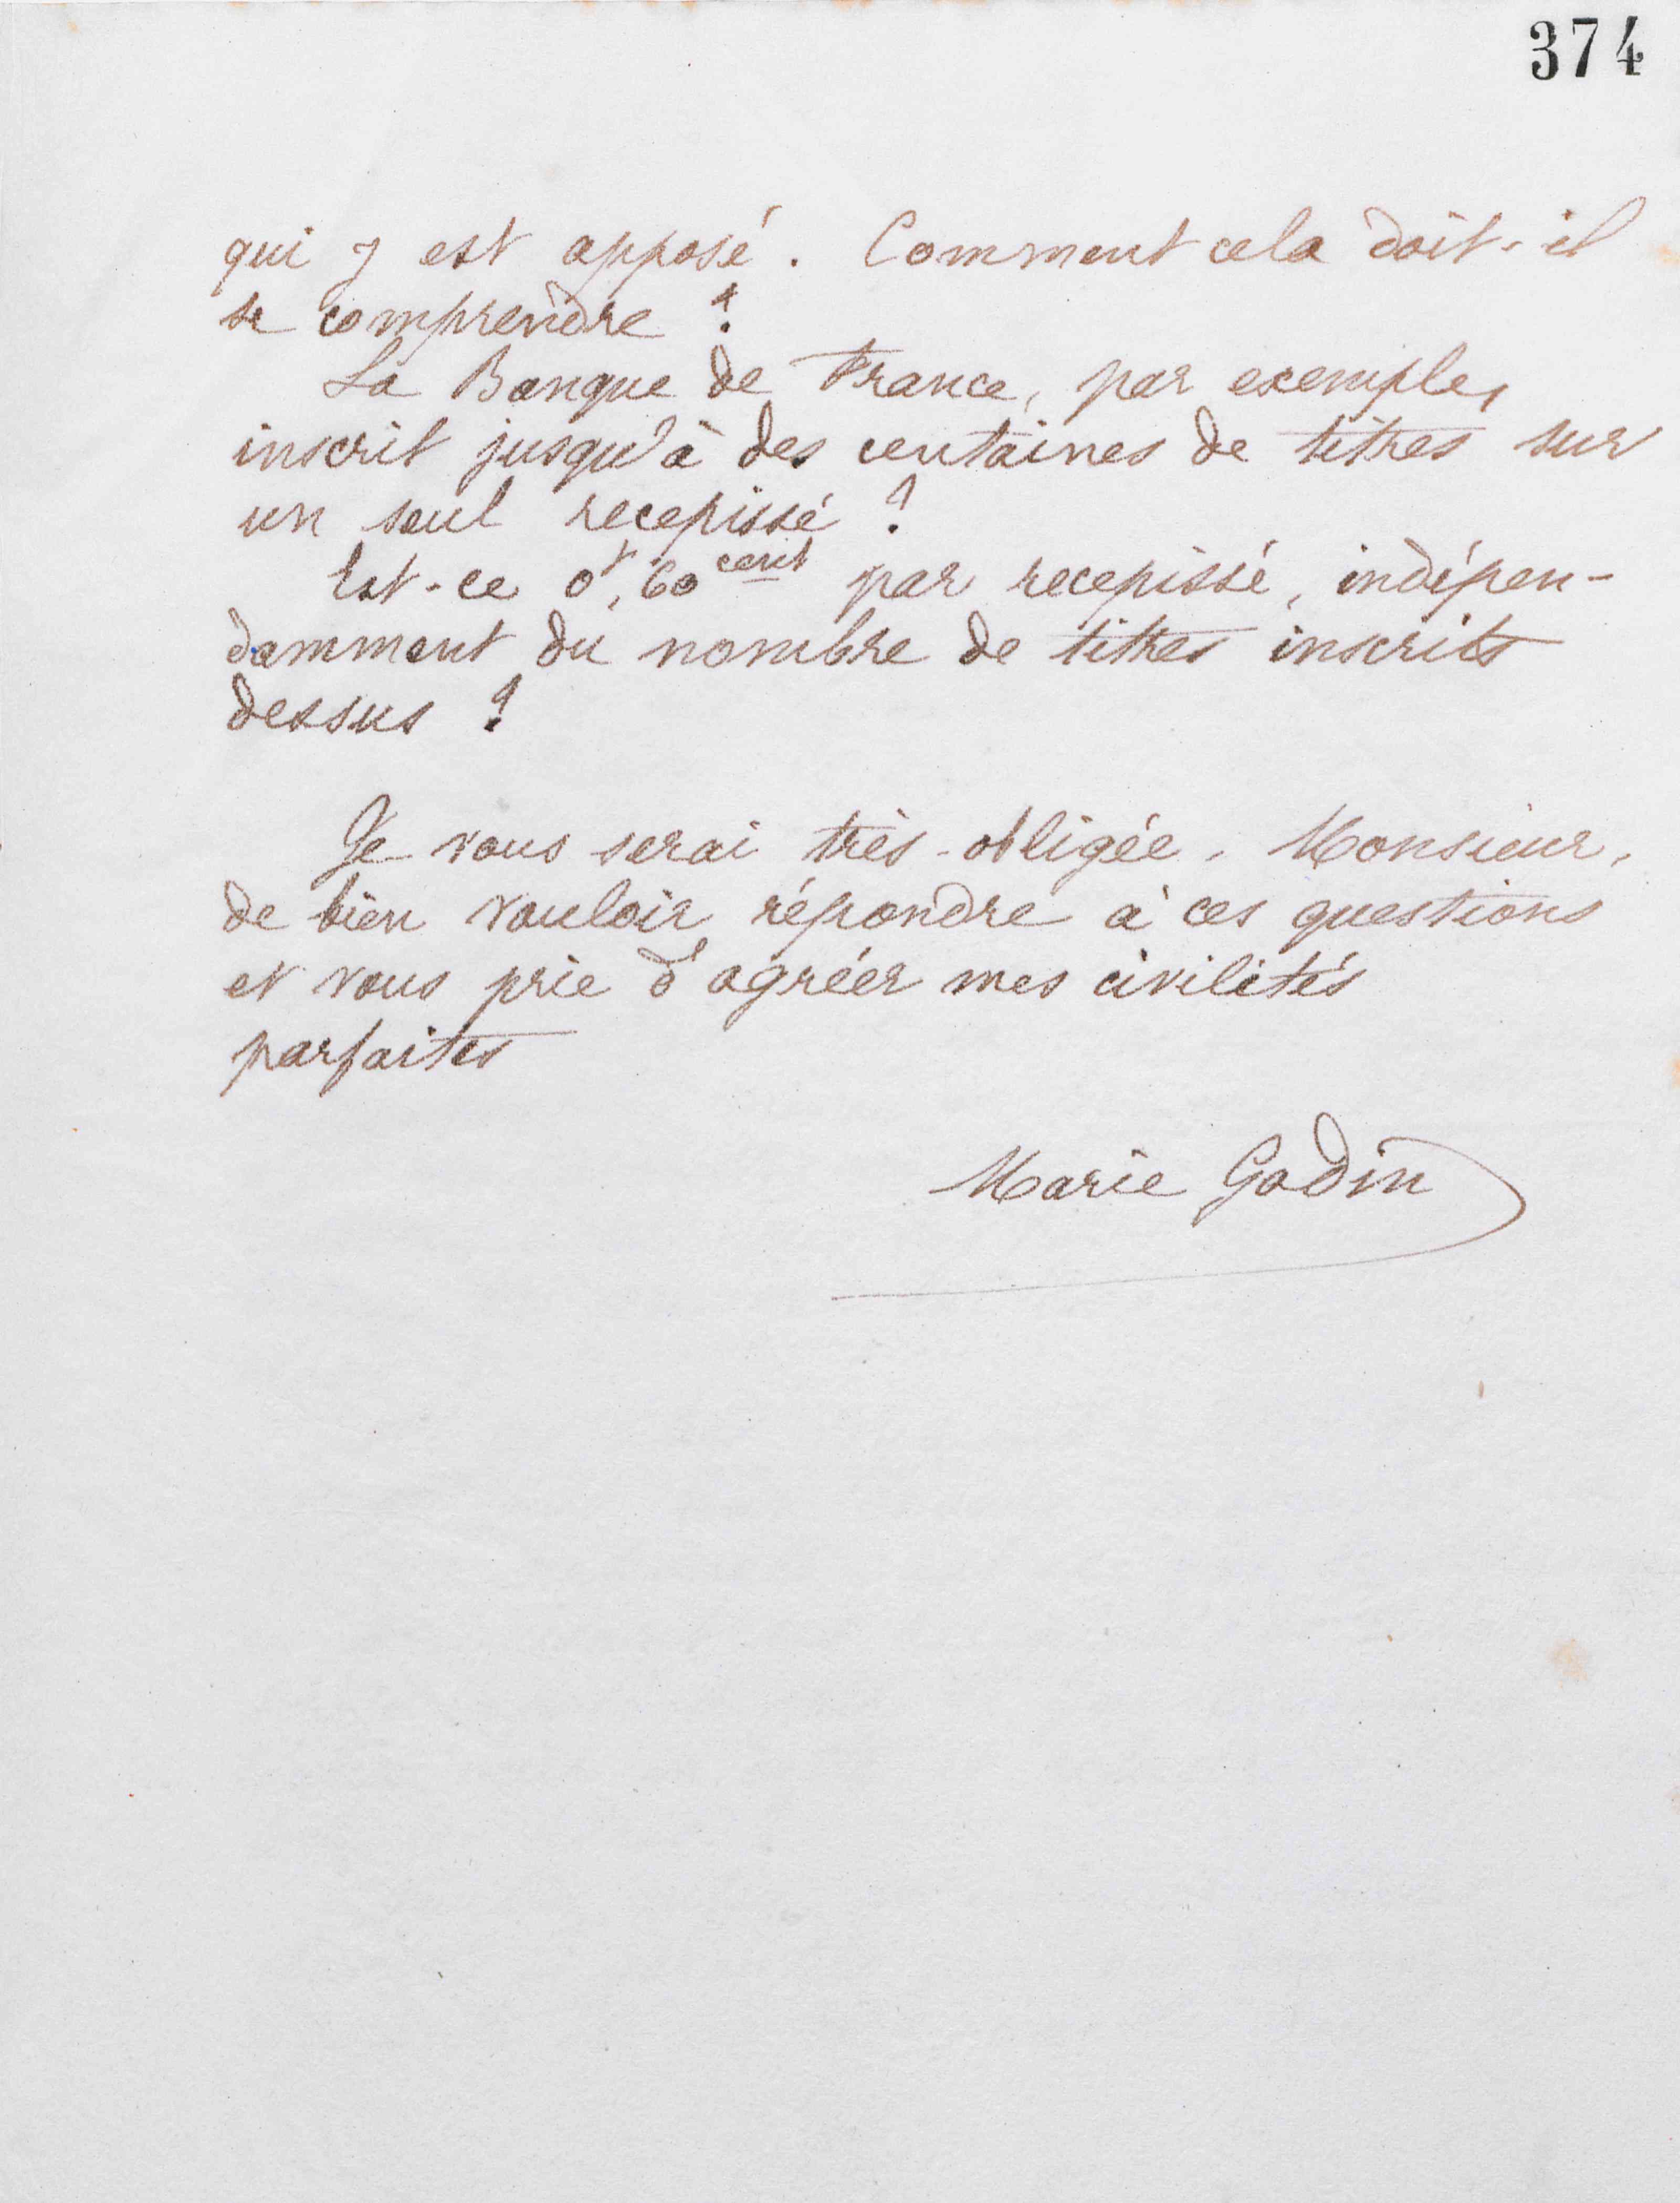 374
qui y est apposé. Comment cela doit-il
se comprendre ?
La Banque de France, par exemple,
inscrit jusqu'à des centaines de titres sur
un seul recepissé ?
Est-ce 0f,60 cent par recepissé, indépen-
damment du nombre de titres inscrits
dessus ?
Je vous serai très-obligée, Monsieur,
de bien vouloir répondre à ces questions
et vous prie d'agréer mes civilités
parfaites
Marie Godin